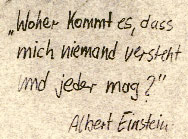 „Woher kommt es, dass
mich niemand versteht
und jeder mag?"
Albert Einstein